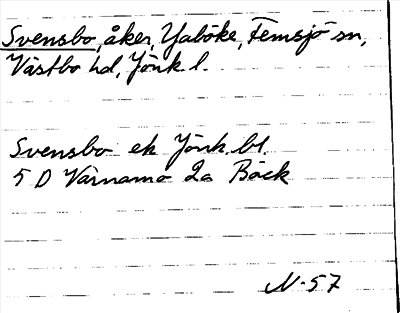 Svensbo, åker, Yaböke, Femsjö sn,
Västbo hd, Jönk l.
Svensbo ek Jönk. bl.
5 D Värnamo 2a Bäck
N-57